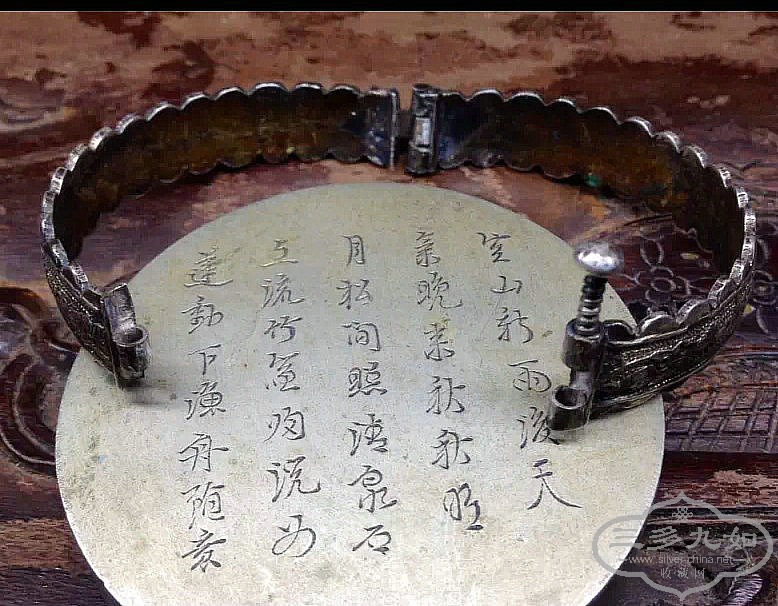 空山新雨後天
氣晚来秋秋明
月松间照清泉石
上流竹归浣女
莲動下漁舟随意
三多九如
www.silver-china.net
收藏网